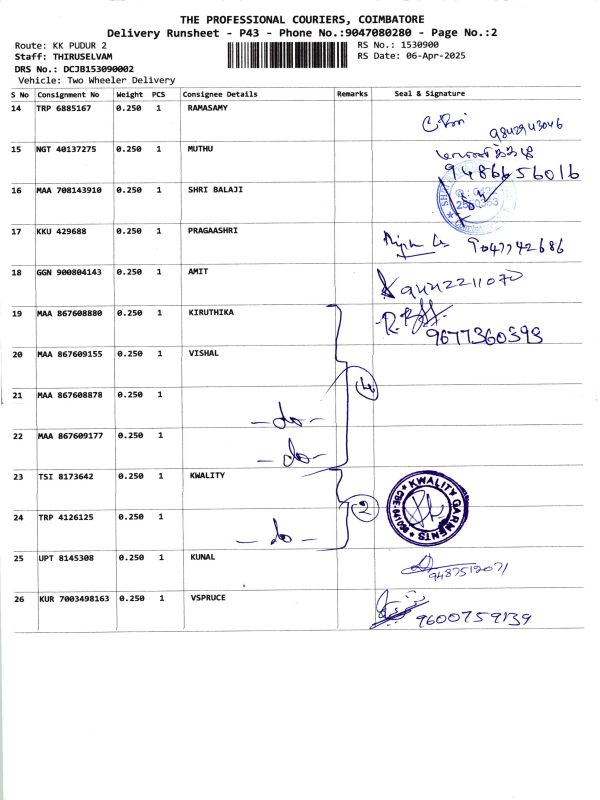 THE PROFESSIONAL COURIERS, COIMBATORE
Delivery Runsheet - P43 - Phone No.:9047080280 - Page No.:2
Route: KK PUDUR 2
RS No.: 1530900
Staff: THIRUSELVAM
RS Date: 06-Apr-2025
DRS No.: DCJB153090002
Vehicle: Two Wheeler Delivery
S No Consignment No Weight PCS Consignee Details Remarks Seal & Signature
14 TRP 6885167 0.250 1 RAMASAMY
9842943046
15 NGT 40137275 0.250 1 MUTHU
9486656016
16 MAA 708143910 0.250 1 SHRI BALAJI
17 KKU 429688 0.250 1 PRAGAASHRI 9047742686
18 GGN 900804143 0.250 1 AMIT 9442211070
19 MAA 867608880 0.250 1 KIRUTHIKA
9677360393
20 MAA 867609155 0.250 1 VISHAL
21 MAA 867608878 0.250 1
4
- do -
22 MAA 867609177 0.250 1 - do -
23 TSI 8173642 0.250 1 KWALITY
KWALITY GARMENTS
2
24 TRP 4126125 0.250 1
- do -
25 UPT 8145308 0.250 1 KUNAL
26 KUR 7003498163 0.250 1 VSPRUCE
9600759139